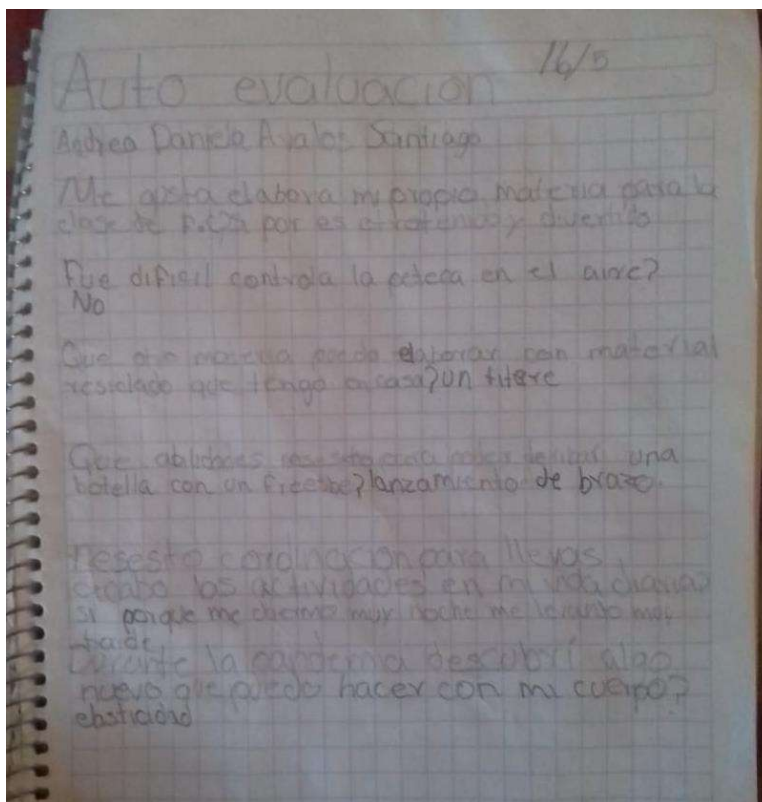 16/5
Auto evaluacion
Andrea Daniela Avalos Santiago
Me gusta elabora mi propio materia para la
clase de por es y divertido
Fue dificil controla la peteca en el aire?
No
Que otro materia puedo elaborar con material
resiclado que tengo en casa? un titere
Que para una
botella con un lanzamiento de brazo.
nesesito cordinacion para llevas
acabo los actividades en mi vida
si porque me duermo muy noche me levanto muy
tarde
Durante la pandemia descubri algo
nuevo que puedo hacer con mi cuerpo?